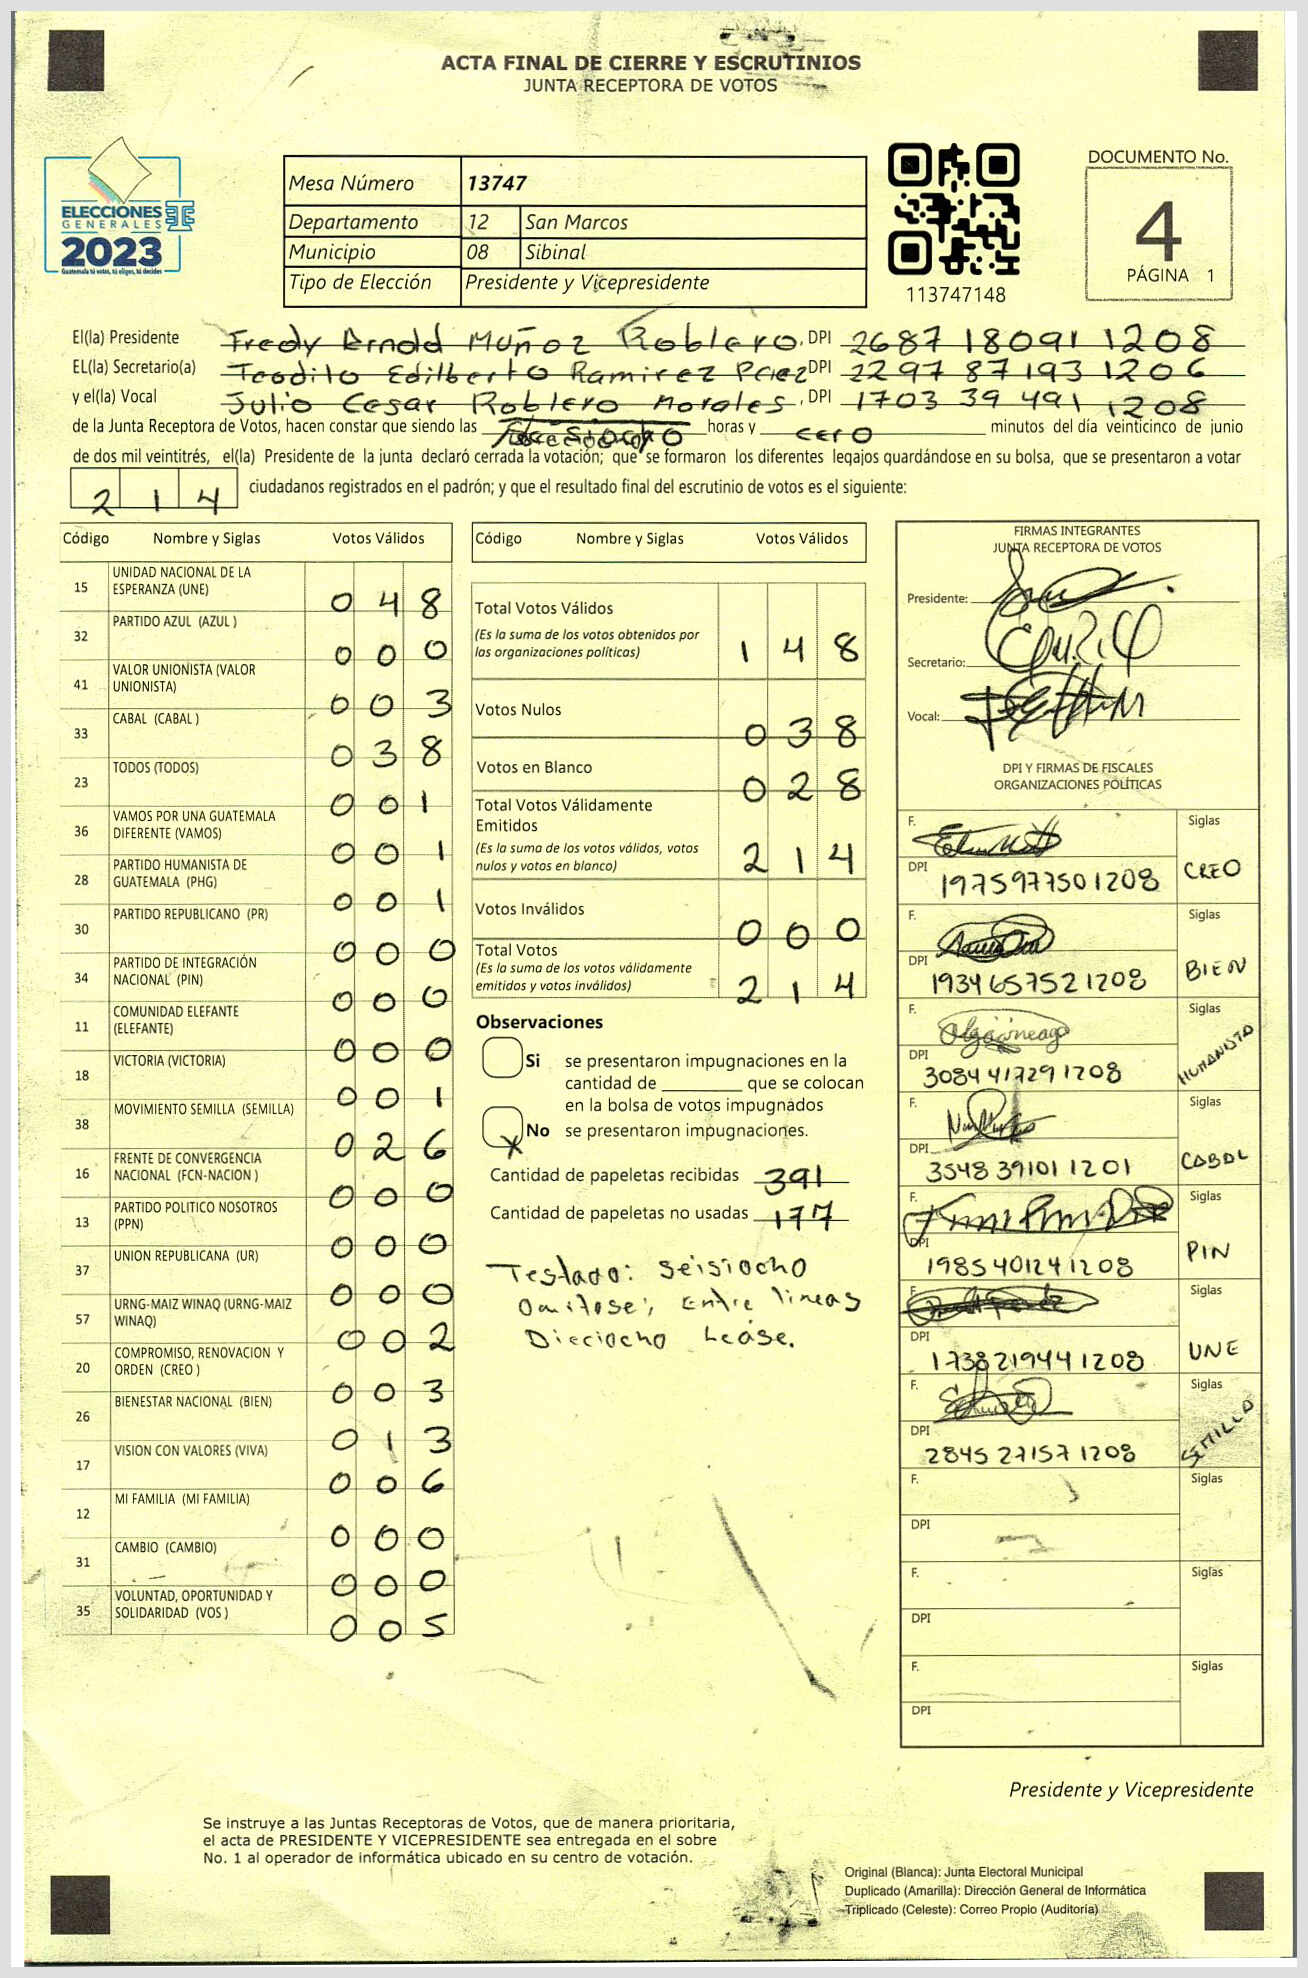 ACTA FINAL DE CIERRE Y ESCRUTINIOS
JUNTA RECEPTORA DE VOTOS
ELECCIONES
GENERALES
2023
Guatemala tú votas, tú eliges, tú decides
Mesa Número 13747
Departamento 12 San Marcos
Municipio 08 Sibinal
Tipo de Elección Presidente y Vicepresidente
113747148
DOCUMENTO No.
4
PÁGINA 1
El(la) Presidente Fredy Arnold Muñoz Roblero, DPI 2687 18091 1208
EL(la) Secretario(a) Teodito Edilberto Ramirez Perez DPI 2297 87193 1206
y el(la) Vocal Julio Cesar Roblero Morales, DPI 1703 39 491 1208
de la Junta Receptora de Votos, hacen constar que siendo las horas y cero minutos del día veinticinco de junio
de dos mil veintitrés, el(la) Presidente de la junta declaró cerrada la votación; que se formaron los diferentes legajos guardándose en su bolsa, que se presentaron a votar
214 ciudadanos registrados en el padrón; y que el resultado final del escrutinio de votos es el siguiente:
Código Nombre y Siglas Votos Válidos
15 UNIDAD NACIONAL DE LA ESPERANZA (UNE) 048
32 PARTIDO AZUL (AZUL ) 000
41 VALOR UNIONISTA (VALOR UNIONISTA) 003
33 CABAL (CABAL ) 038
23 TODOS (TODOS) 001
36 VAMOS POR UNA GUATEMALA DIFERENTE (VAMOS) 001
28 PARTIDO HUMANISTA DE GUATEMALA (PHG) 001
30 PARTIDO REPUBLICANO (PR) 000
34 PARTIDO DE INTEGRACIÓN NACIONAL (PIN) 000
11 COMUNIDAD ELEFANTE (ELEFANTE) 000
18 VICTORIA (VICTORIA) 001
38 MOVIMIENTO SEMILLA (SEMILLA) 026
16 FRENTE DE CONVERGENCIA NACIONAL (FCN-NACION ) 000
13 PARTIDO POLITICO NOSOTROS (PPN) 000
37 UNION REPUBLICANA (UR) 000
57 URNG-MAIZ WINAQ (URNG-MAIZ WINAQ) 002
20 COMPROMISO, RENOVACION Y ORDEN (CREO ) 003
26 BIENESTAR NACIONAL (BIEN) 013
17 VISION CON VALORES (VIVA) 006
12 MI FAMILIA (MI FAMILIA) 000
31 CAMBIO (CAMBIO) 000
35 VOLUNTAD, OPORTUNIDAD Y SOLIDARIDAD (VOS ) 005
Código Nombre y Siglas Votos Válidos
Total Votos Válidos 148
(Es la suma de los votos obtenidos por
las organizaciones políticas)
Votos Nulos 038
Votos en Blanco 028
Total Votos Válidamente
Emitidos 214
(Es la suma de los votos válidos, votos
nulos y votos en blanco)
Votos Inválidos 000
Total Votos 214
(Es la suma de los votos válidamente
emitidos y votos inválidos)
Observaciones
Si se presentaron impugnaciones en la
cantidad de ________ que se colocan
en la bolsa de votos impugnados
X No se presentaron impugnaciones.
Cantidad de papeletas recibidas 391
Cantidad de papeletas no usadas 177
Testado: Seisiocho
Omitase; Entre lineas
Dieciocho Lease.
FIRMAS INTEGRANTES
JUNTA RECEPTORA DE VOTOS
Presidente:
Secretario:
Vocal:
DPI Y FIRMAS DE FISCALES
ORGANIZACIONES POLÍTICAS
F. Siglas
DPI 1975977501208 CREO
F. Siglas
DPI 1934 65752 1208 BIEN
F. Siglas
DPI 3084 41729 1208 HUMANISTA
F. Siglas
DPI 3548 39101 1201 CABAL
F. Siglas
DPI 1985 40124 1208 PIN
F. Siglas
DPI 1738219441208 UNE
F. Siglas
DPI 2845 27157 1208 SEMILLA
F. Siglas
DPI
F. Siglas
DPI
F. Siglas
DPI
Presidente y Vicepresidente
Se instruye a las Juntas Receptoras de Votos, que de manera prioritaria,
el acta de PRESIDENTE Y VICEPRESIDENTE sea entregada en el sobre
No. 1 al operador de informática ubicado en su centro de votación.
Original (Blanca): Junta Electoral Municipal
Duplicado (Amarilla): Dirección General de Informática
Triplicado (Celeste): Correo Propio (Auditoría)